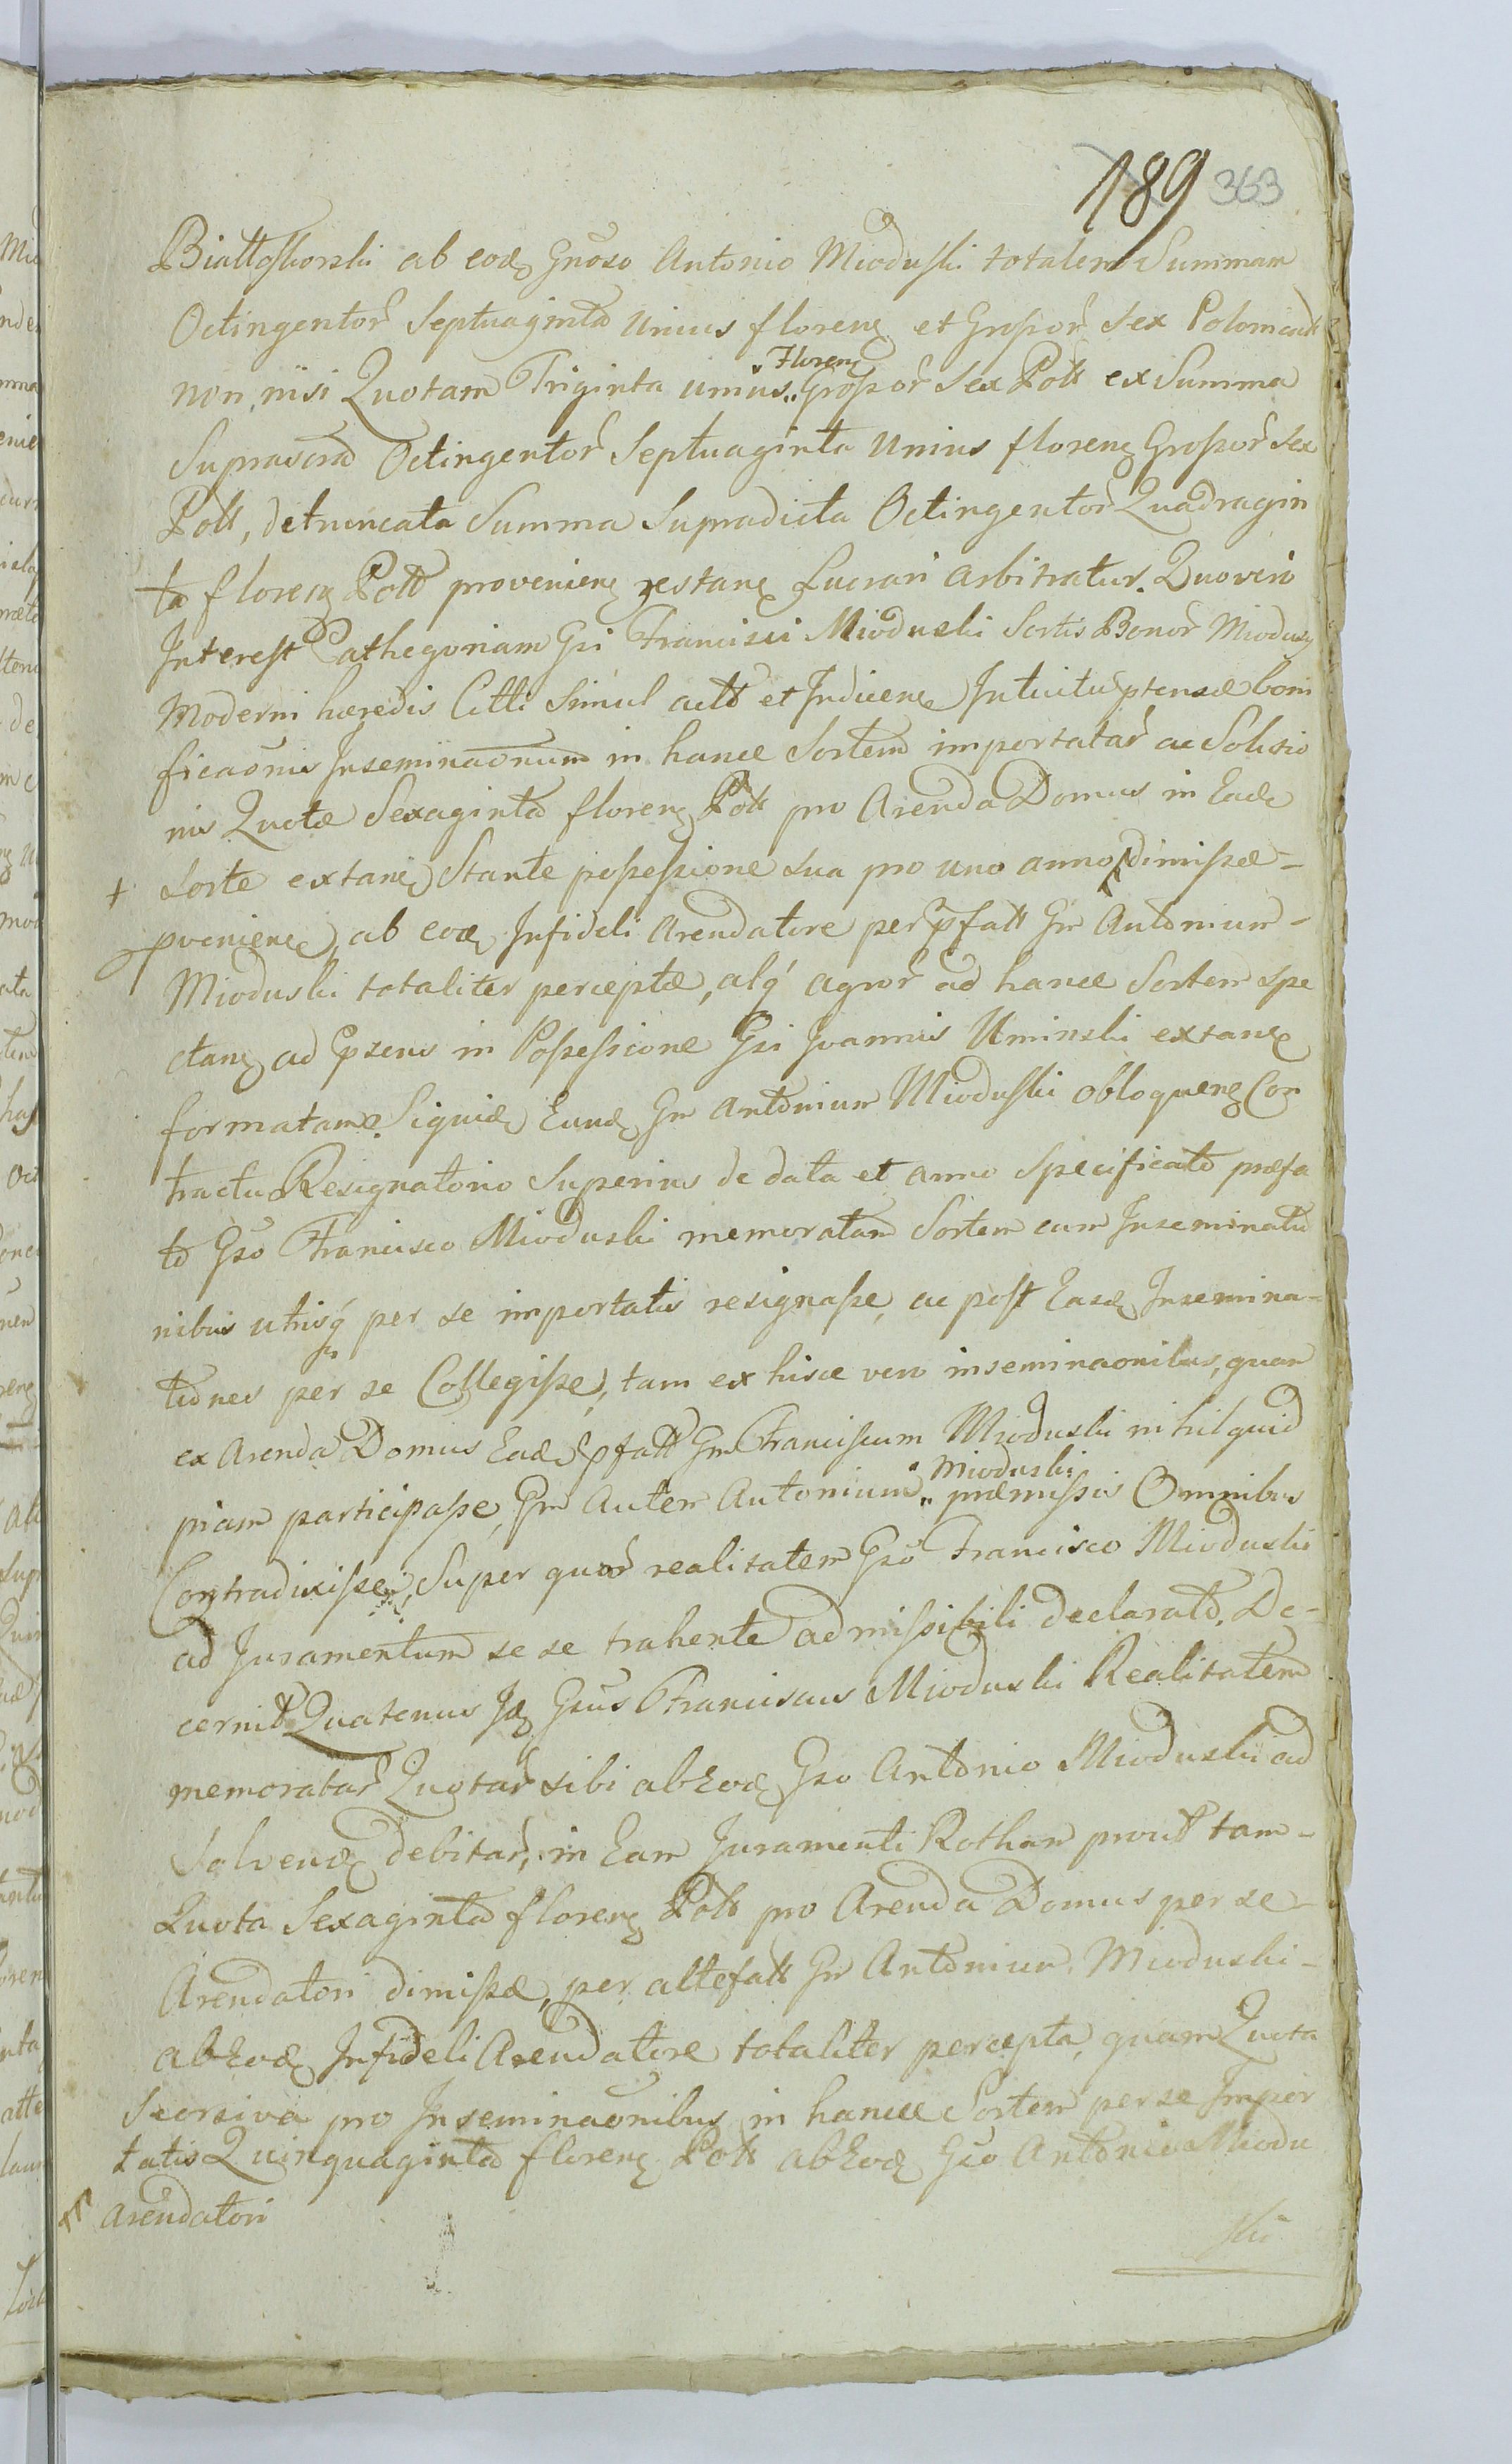 189 363
Bialloskorski ab eod Gnoso Antonio Mioduski totalem Summam
Octingentor Septuaginta Unius floren et Grossor Sex Polonical
non nisi Quotam Triginta unius Floren Grossor Sex Poll ex Summa
Suprascra Octingentor Septuaginta Unius floren Grossor Sex
Poll, detruncata Summa Supradicta Octingentor Quadragin
ta floren Poll provenien restan Lucrari arbitratur. Quo vero
Interest Cathegoriam Gsi Francisci Mioduski Sortis Bonor Miodusy
Moderni hæredis Citti Simul actt et Indicen Intuitu ptensæ boni
ficaõnis Inseminaõnum in hance Sortem importatar ac Soluti͠o
nis Quotæ Sexaginta floren Poll pro Arenda Domus in Ead
+ Sorte extan Stante possessione sua pro uno anno dimissæ -
pvenien ab eod Infideli Arendatore per pfatt Gm Antonium -
Mioduski totaliter perceptæ, alq́ agror ad hance Sortem spe
ctan ad psens in Possessione Gsi Joannis Uminski extan
formatam. Siquid Eund Gm Antonium Mioduski obloquen Con
tractu Resignatorio Superius de data et anno Specificato præfa
to Gso Francisco Mioduski memoratam Sortem cum Inseminatio
nibus utrisq́ per se importatis resignasse, ac post Easd Insemina-
tiones per se Collegisse, tam ex hisce vero inseminaonibus, quam
ex Arenda Domus Ead pfatt Gm Franciscum Mioduski nihil quid
piam participasse, Gm Autem Antonium Mioduski præmissis Omnibus
Contradixisse, Super quor realitatem Gso Francisco Mioduski
ad Juramentum se se trahente admissibili declarato. De-
cernit Quatenus Id Gsus Franciscus Mioduski Realitatem
memoratar Quotar sibi ab Eod Gso Antonio Mioduski ad
Solvend debitar, in Eam Juramenti Rotham prout tam -
Quota Sexaginta floren Poll pro Arenda Domus per se
Arendatori dimissæ, per altefatt Gm Antonium Mioduski -
ab Eod Infideli Arendatore totaliter percepta, quam Quota
Seorsiva pro Inseminaonibus in hance Sortem per se Impor
tatis Quinquaginta floren Poll ab Eod Gso Antonio Miodu
arendatori
ski